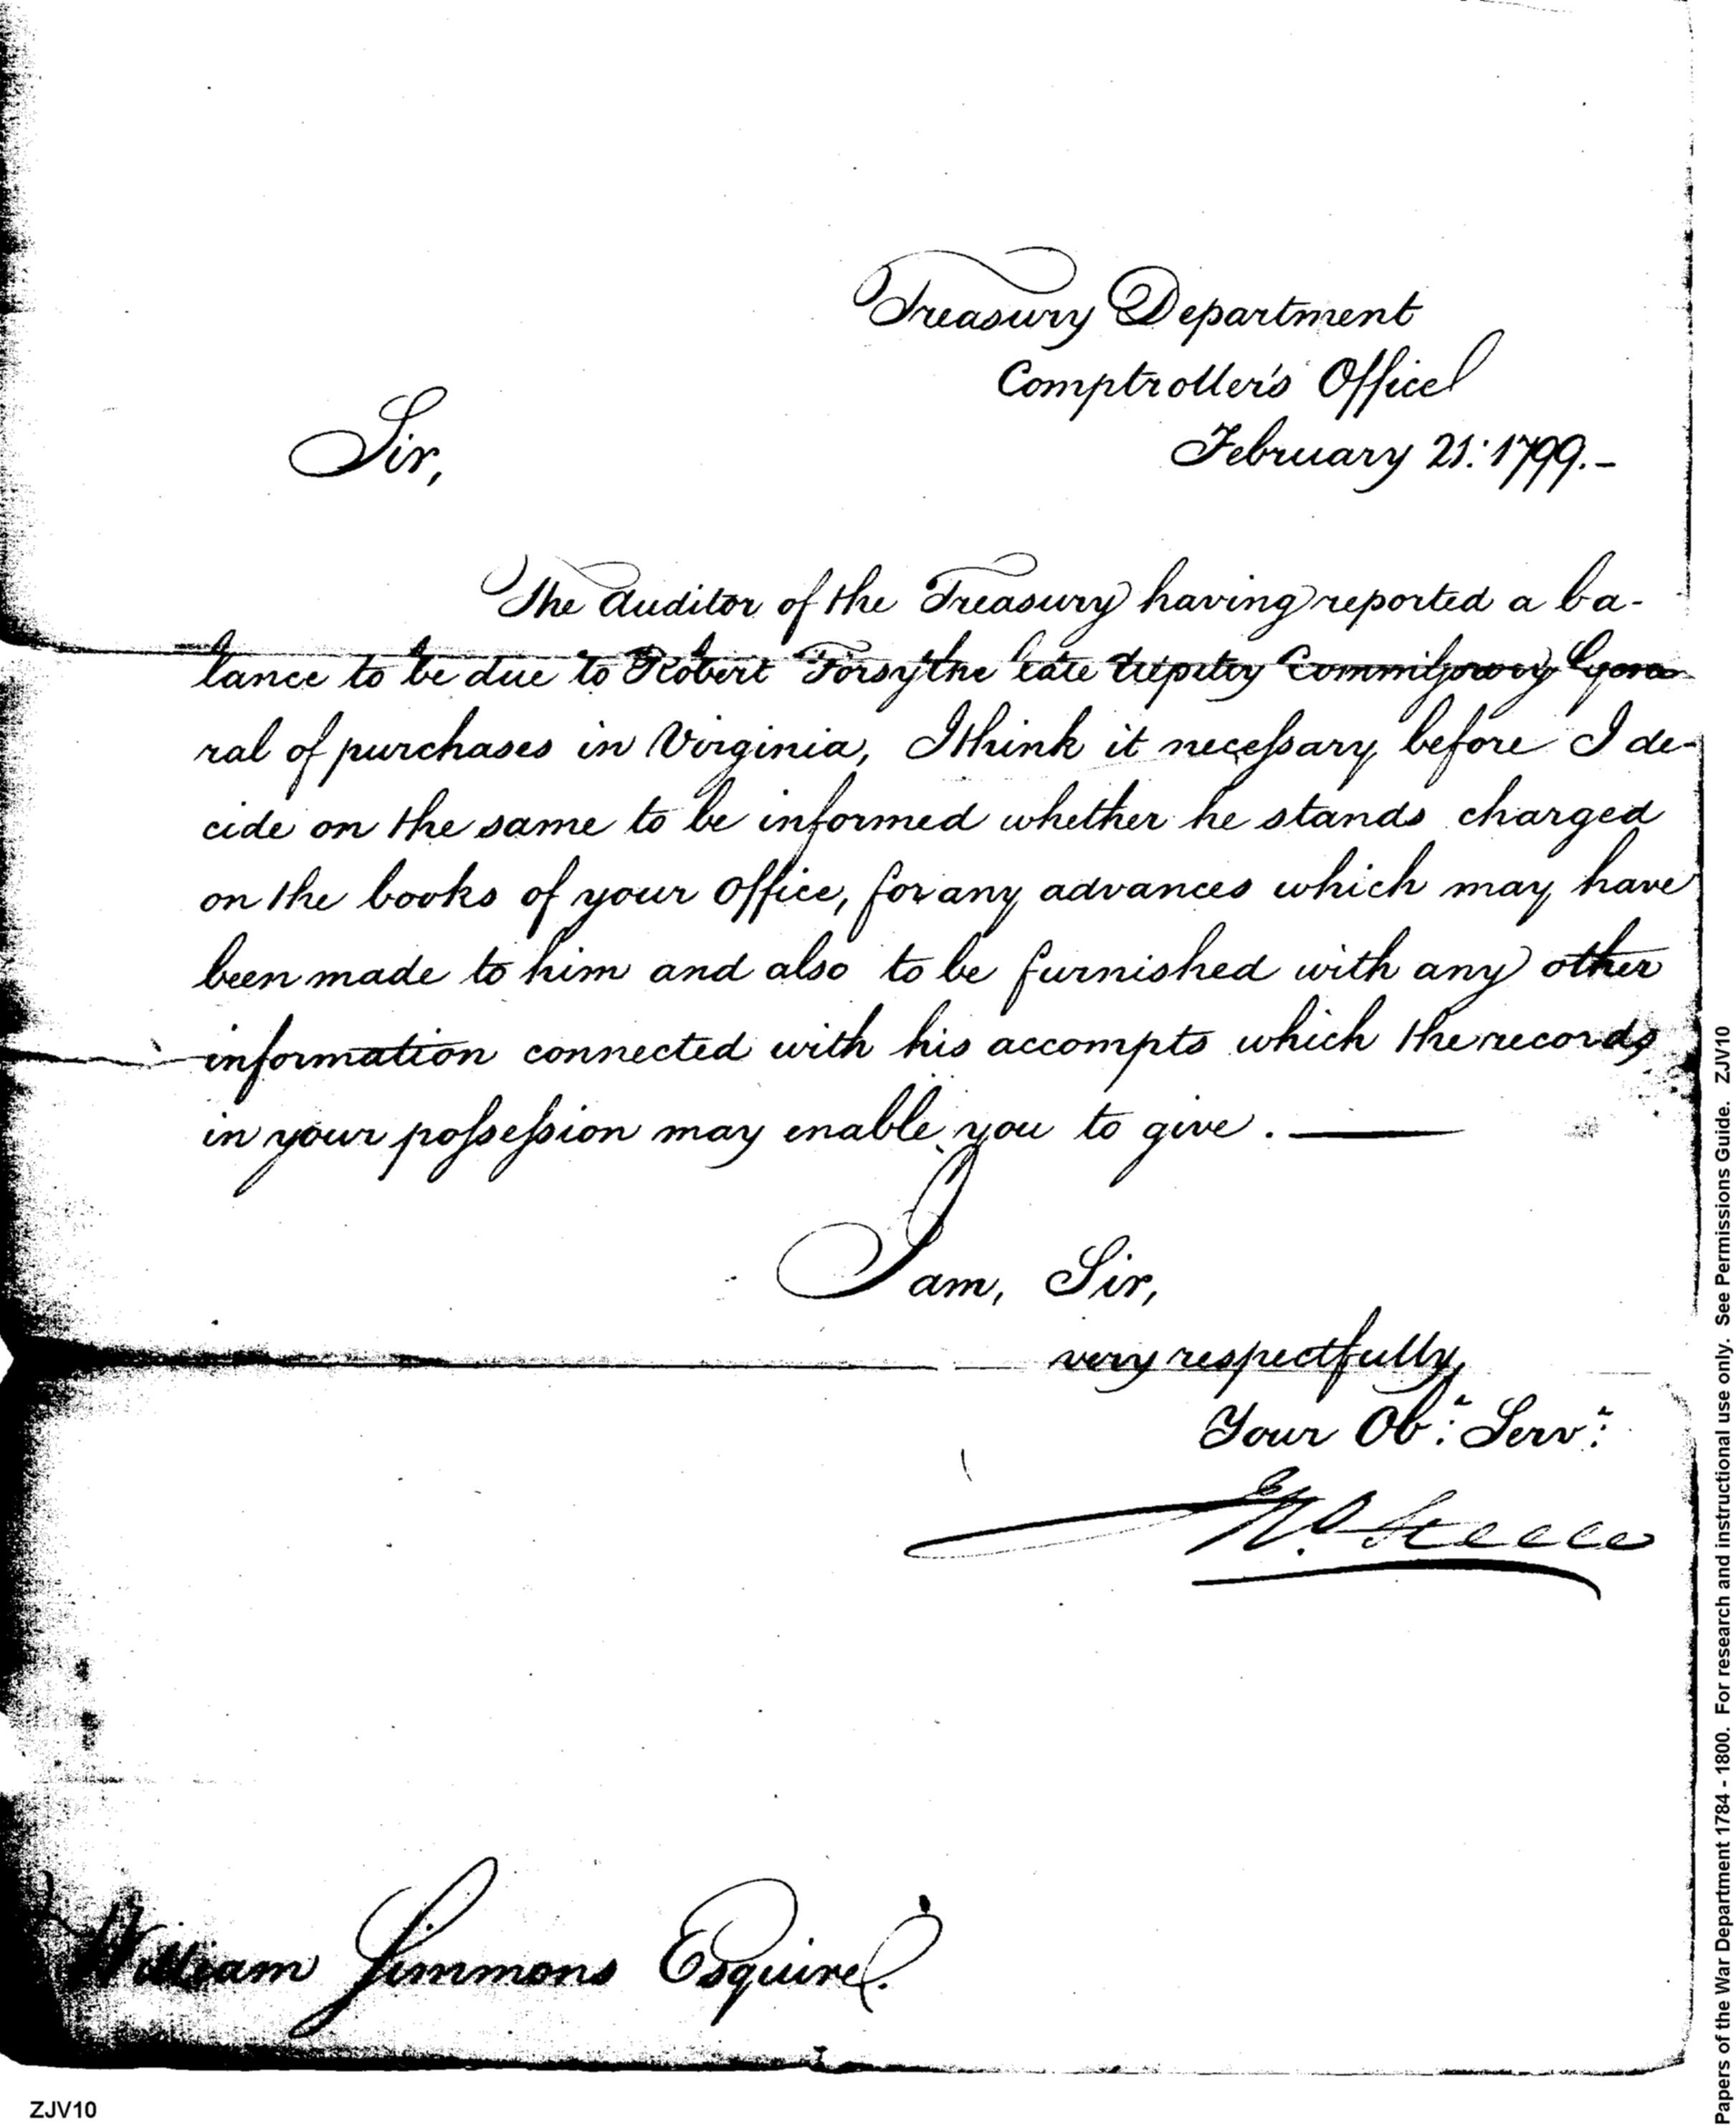 Treasury Department
Comptroller's Office
February 21: 1799.-
Sir,
The Auditor of the Treasury having reported a ba-
lance to be due to Robert Forsythe late deputy Commissary Gene-
ral of purchases in Virginia, I think it necessary before I de-
cide on the same to be informed whether he stands charged
on the books of your Office, for any advances which may have
been made to him and also to be furnished with any other
information connected with his accompts which the records
in your possession may enable you to give. —
I am, Sir,
very respectfully,
Your Obt. Servt.
Jno. Steele
William Simmons Esquire.
ZJV10
Papers of the War Department 1784 - 1800. For research and instructional use only. See Permissions Guide. ZJV10